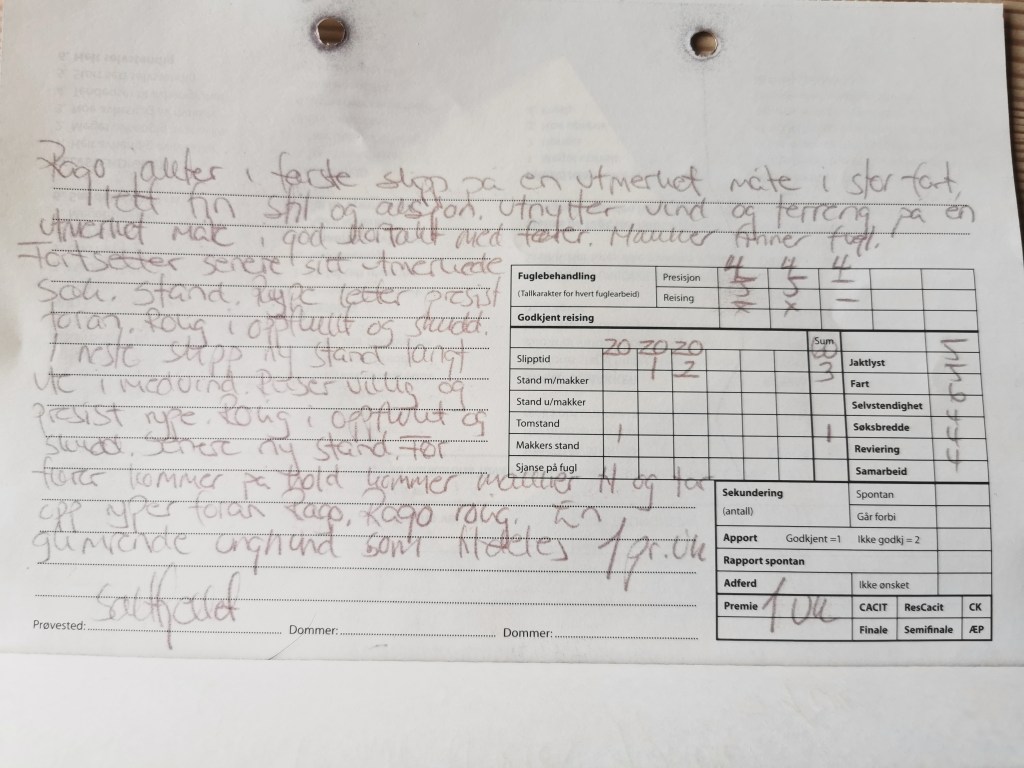 Rago jakter i første slipp på en utmerket måte i stor fart,
i lett fin stil og aksjon. Utnytter vind og terreng på en
utmerket måte, i god kontakt med fører. Makker finner fugl.
Fortsetter senere sitt utmerkede
søk. Stand. Rype letter presist
foran. Rolig i oppflukt og skudd.
I neste slipp ny stand langt
ute i medvind. Reiser villig og
presist rype. Rolig i oppflukt og
skudd. Senere ny stand. Før
fører kommer på hold kommer makker til og tar
opp ryper foran Rago. Rago rolig. En
glimrende unghund som tildeles 1 pr. UK
Fuglebehandling
(Tallkarakter for hvert fuglearbeid)
Presisjon 4 4 4
Reising 5 5 –
Godkjent reising x x
Sum
Slipptid 20 20 20
Stand m/makker 1 2 3
Stand u/makker
Tomstand
Makkers stand 1 1
Sjanse på fugl
Jaktlyst 5
Fart 5
Selvstendighet
Søksbredde
Reviering 4
Samarbeid 4
Sekundering
(antall)
Spontan
Går forbi
Apport Godkjent =1 Ikke godkj = 2
Rapport spontan
Adferd Ikke ønsket
Premie 1 UK CACIT ResCacit CK
Finale Semifinale ÆP
Saltfjellet
Prøvested: Dommer: Dommer: